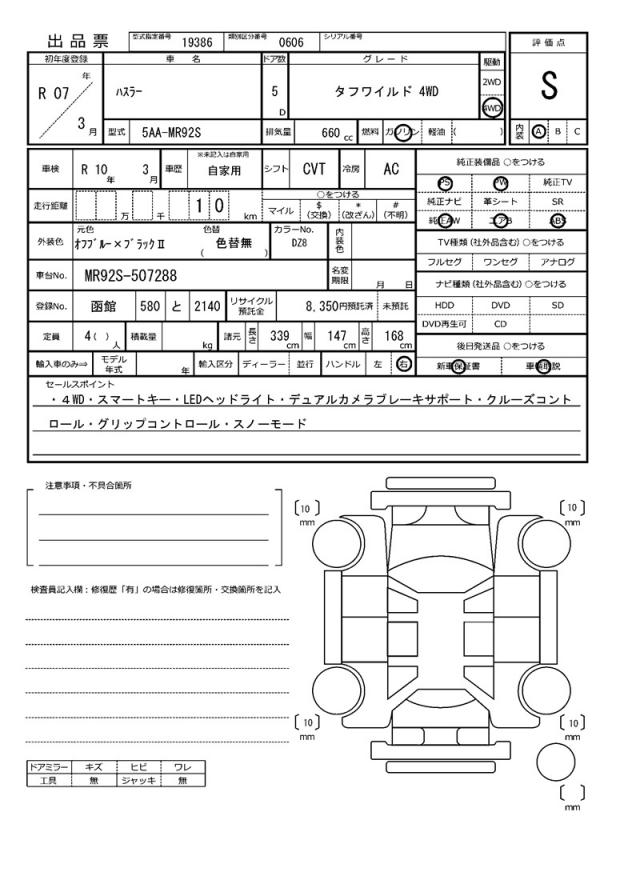 出品票 型式指定番号 19386 類別区分番号 0606 シリアル番号
評価点
S
内装 A B C
初年度登録 車名 ドア数 グレード 駆動
R 07 年 3 月 ハスラー 5 D タフワイルド 4WD 2WD 4WD
型式 5AA-MR92S 排気量 660 cc 燃料 ガソリン 軽油 ( )
車検 R 10 年 3 月 車歴 ※未記入は自家用 自家用 シフト CVT 冷房 AC
走行距離 万 千 1 0 km ○をつける
マイル $(交換) *(改ざん) #(不明)
外装色 元色 オフブルー×ブラックⅡ 色替 ( 色替無 ) カラーNo. DZ8 内装色
車台No. MR92S-507288 名変期限 月 日
登録No. 函館 580 と 2140 リサイクル預託金 8,350円預託済 未預託
定員 4( ) 人 積載量 kg 諸元 長さ 339 cm 幅 147 cm 高さ 168 cm
輸入車のみ⇒ モデル年式 年 輸入区分 ディーラー 並行 ハンドル 左 右
純正装備品 ○をつける
PS PW 純正TV
純正ナビ 革シート SR
純正AW エアB ABS
TV種類 (社外品含む) ○をつける
フルセグ ワンセグ アナログ
ナビ種類 (社外品含む) ○をつける
HDD DVD SD
DVD再生可 CD
後日発送品 ○をつける
新車保証書 車輌取説
セールスポイント
・4WD・スマートキー・LEDヘッドライト・デュアルカメラブレーキサポート・クルーズコント
ロール・グリップコントロール・スノーモード
注意事項・不具合箇所
検査員記入欄：修復歴「有」の場合は修復箇所・交換箇所を記入
ドアミラー キズ ヒビ ワレ
工具 無 ジャッキ 無
〔10〕 mm
〔10〕 mm
〔10〕 mm
〔10〕 mm
〔 〕 mm